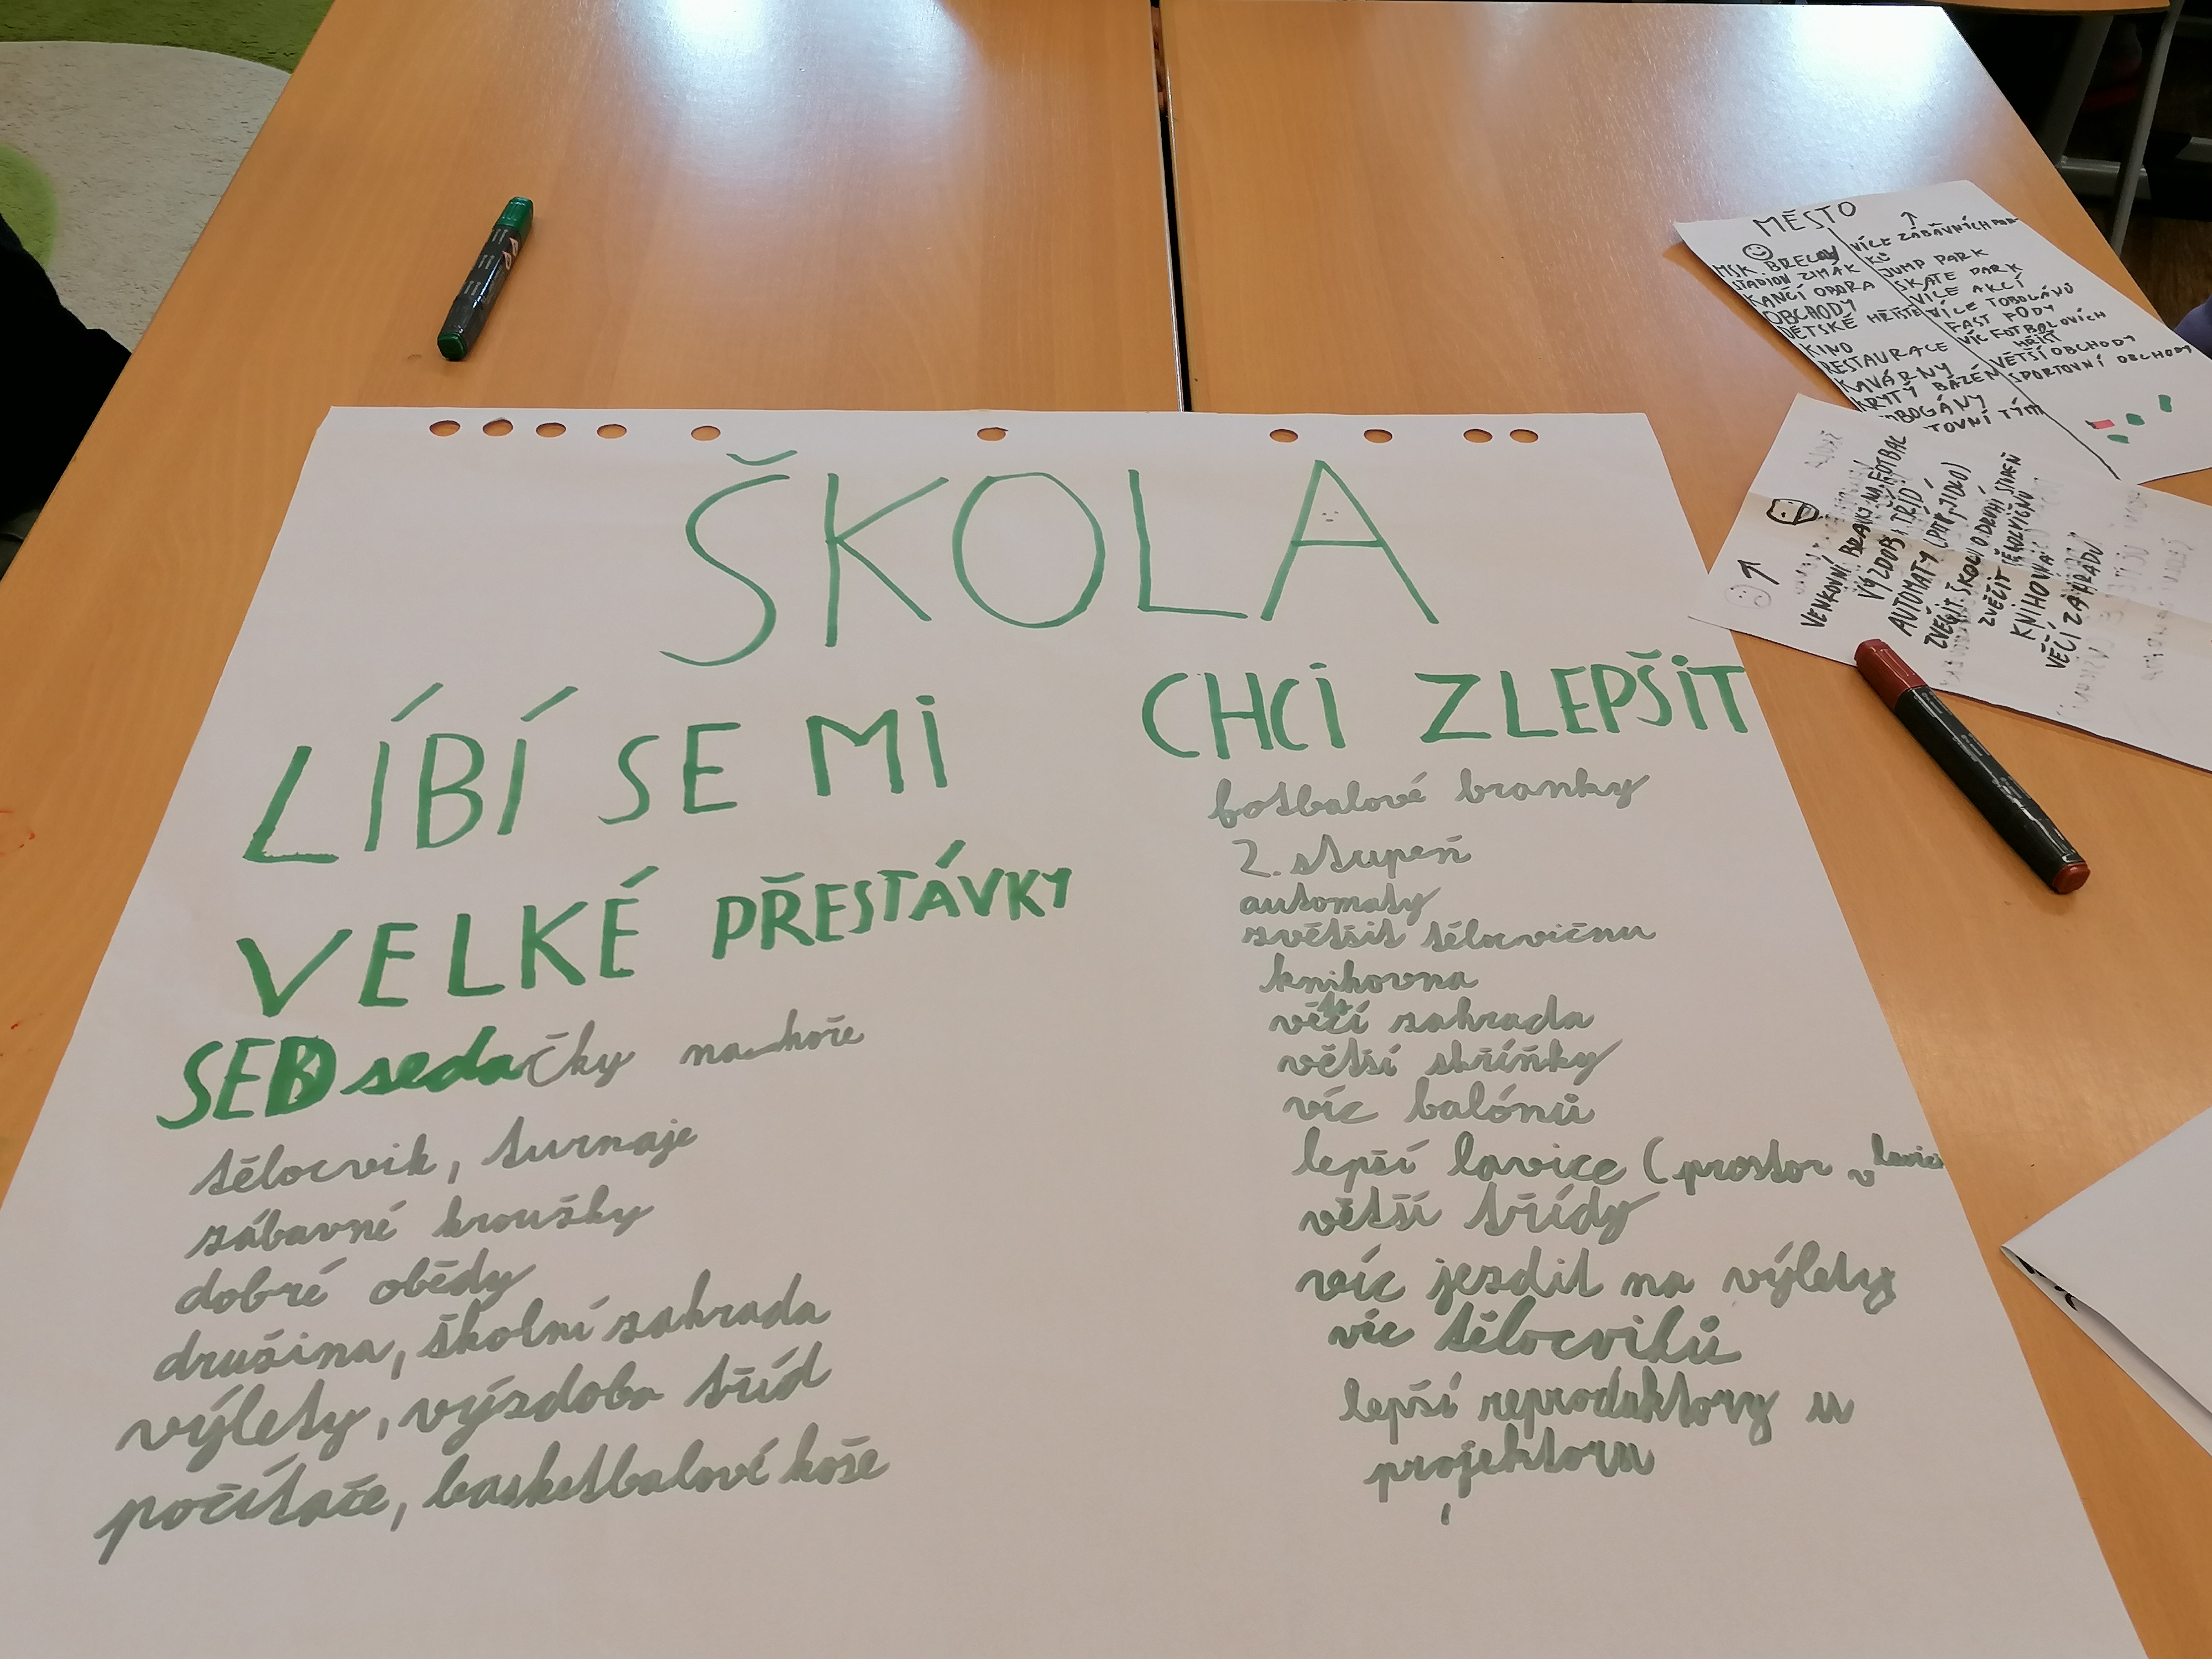 ŠKOLA
LÍBÍ SE MI
VELKÉ PŘESTÁVKY
sedačky nahoře
tělocvik, turnaje
zábavné kroužky
dobré obědy
družina, školní zahrada
výlety, výzdoba tříd
počítače, basketbalové koše
CHCI ZLEPŠIT
fotbalové branky
2. stupeň
automaty
zvětšit tělocvičnu
knihovna
větčí zahrada
větší skříňky
víc balónů
lepší lavice (prostor v lavici
větší třídy
víc jezdit na výlety
víc tělocviků
lepší reproduktory u
projektoru
MĚSTO
MSK BŘECLAV
STADION ZIMÁK
KANČÍ OBORA
OBCHODY
DĚTSKÉ HŘIŠTĚ
KINO
RESTAURACE
KAVÁRNY
KRYTÝ BAZÉN
TOVNÍ TÝM
VÍCE ZÁBAVNÍCH
JUMP PARK
SKATE PARK
VÍCE AKCÍ
VÍCE TOBOGÁNŮ
FAST FOODY
VÍC FOTBOLOVÍCH
HŘIŠŤ
VĚTŠÍ OBCHODY
SPORTOVNÍ OBCHODY
VENKOVNÍ BRANKY NA FOTBAL
VÝZDOB TŘÍD
AUTOMATY (PITÍ, JÍDLO)
ZVĚČIT ŠKOLU O DRUHÍ STUPEŇ
ZVĚČIT TĚLOCVIČNU
KNIHOVNA
VĚČÍ ZAHRADU